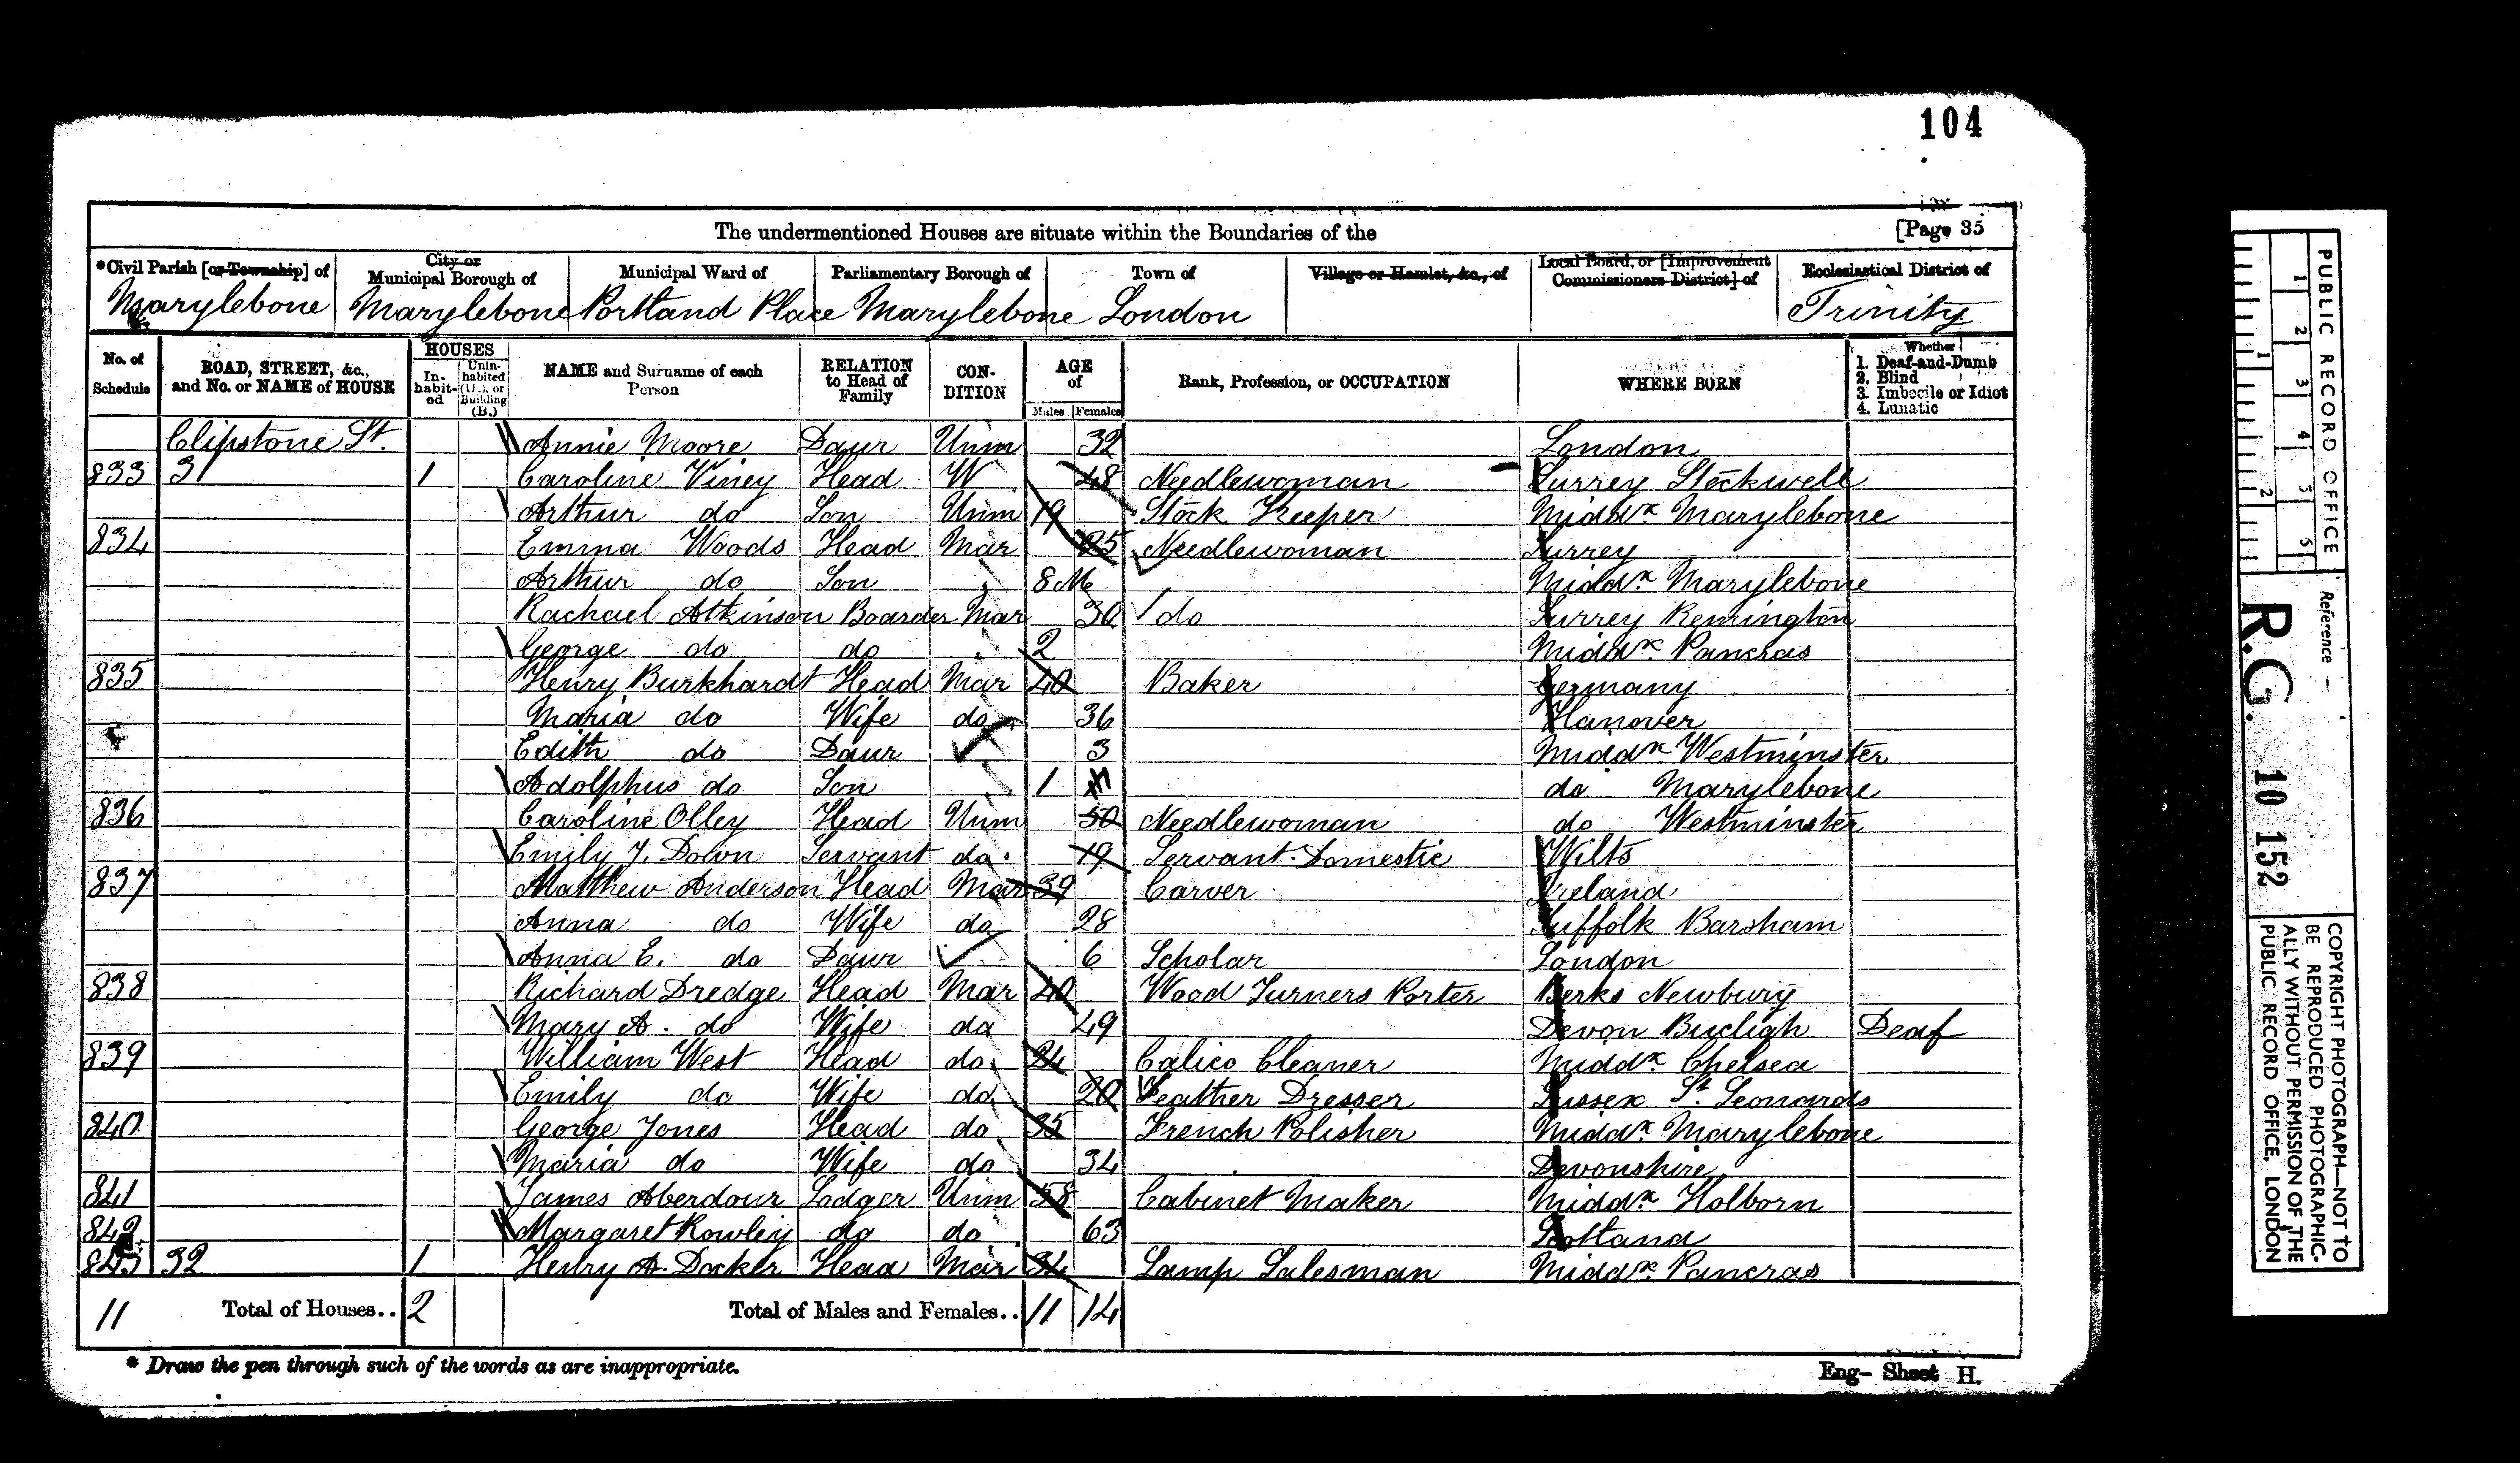 104
The undermentioned Houses are situate within the Boundaries of the [Page 35
*Civil Parish [or Township] of City or Municipal Borough of Municipal Ward of Parliamentary Borough of Town of Village or Hamlet, &c., of Local Board, or [Improvement Commissioners District] of Ecclesiastical District of
Marylebone Marylebone Portland Place Marylebone London Trinity
No. of Schedule ROAD, STREET, &c., and No. or NAME of HOUSE HOUSES Inhabited Uninhabited (U.), or Building (B.) NAME and Surname of each Person RELATION to Head of Family CONDITION AGE of Males Females Rank, Profession, or OCCUPATION WHERE BORN Whether 1. Deaf-and-Dumb 2. Blind 3. Imbecile or Idiot 4. Lunatic
Clipstone St. Annie Moore Daur Unm 32 London
833 31 1 Caroline Viney Head W 48 Needlewoman Surrey Stockwell
Arthur do Son Unm 19 Stock Keeper Middx Marylebone
834 Emma Woods Head Mar 25 Needlewoman Surrey
Arthur do Son 8 M Middx Marylebone
Rachael Atkinson Boarder Mar 30 do Surrey Remington
George do do 2 Middx Pancras
835 Henry Burkhardt Head Mar 40 Baker Germany
Maria do Wife do 36 Hanover
Edith do Daur 3 Middx Westminster
Adolphus do Son 1 do Marylebone
836 Caroline Olley Head Unm 50 Needlewoman do Westminster
Emily J. Down Servant do 19 Servant Domestic Wilts
837 Matthew Anderson Head Mar 39 Carver Ireland
Anna do Wife do 28 Suffolk Barsham
Anna E. do Daur 6 Scholar London
838 Richard Dredge Head Mar 40 Wood Turners Porter Berks Newbury
Mary A. do Wife do 49 Devon Deaf
839 William West Head do 24 Calico Cleaner Middx Chelsea
Emily do Wife do 20 Feather Dresser Sussex St. Leonards
840 George Jones Head do 35 French Polisher Middx Marylebone
Maria do Wife do 34 Devonshire
841 James Aberdour Lodger Unm 58 Cabinet Maker Middx Holborn
842 Margaret Rowley do do 63 Scotland
843 32 1 Henry A. Docker Head Mar 34 Lamp Salesman Middx Pancras
11 Total of Houses.. 2 Total of Males and Females.. 11 14
* Draw the pen through such of the words as are inappropriate.
Eng- Sheet H.
PUBLIC RECORD OFFICE
1 2 3 4 5
1 2
Reference
R.G. 10 152
COPYRIGHT PHOTOGRAPH—NOT TO
BE REPRODUCED PHOTOGRAPHIC-
ALLY WITHOUT PERMISSION OF THE
PUBLIC RECORD OFFICE, LONDON